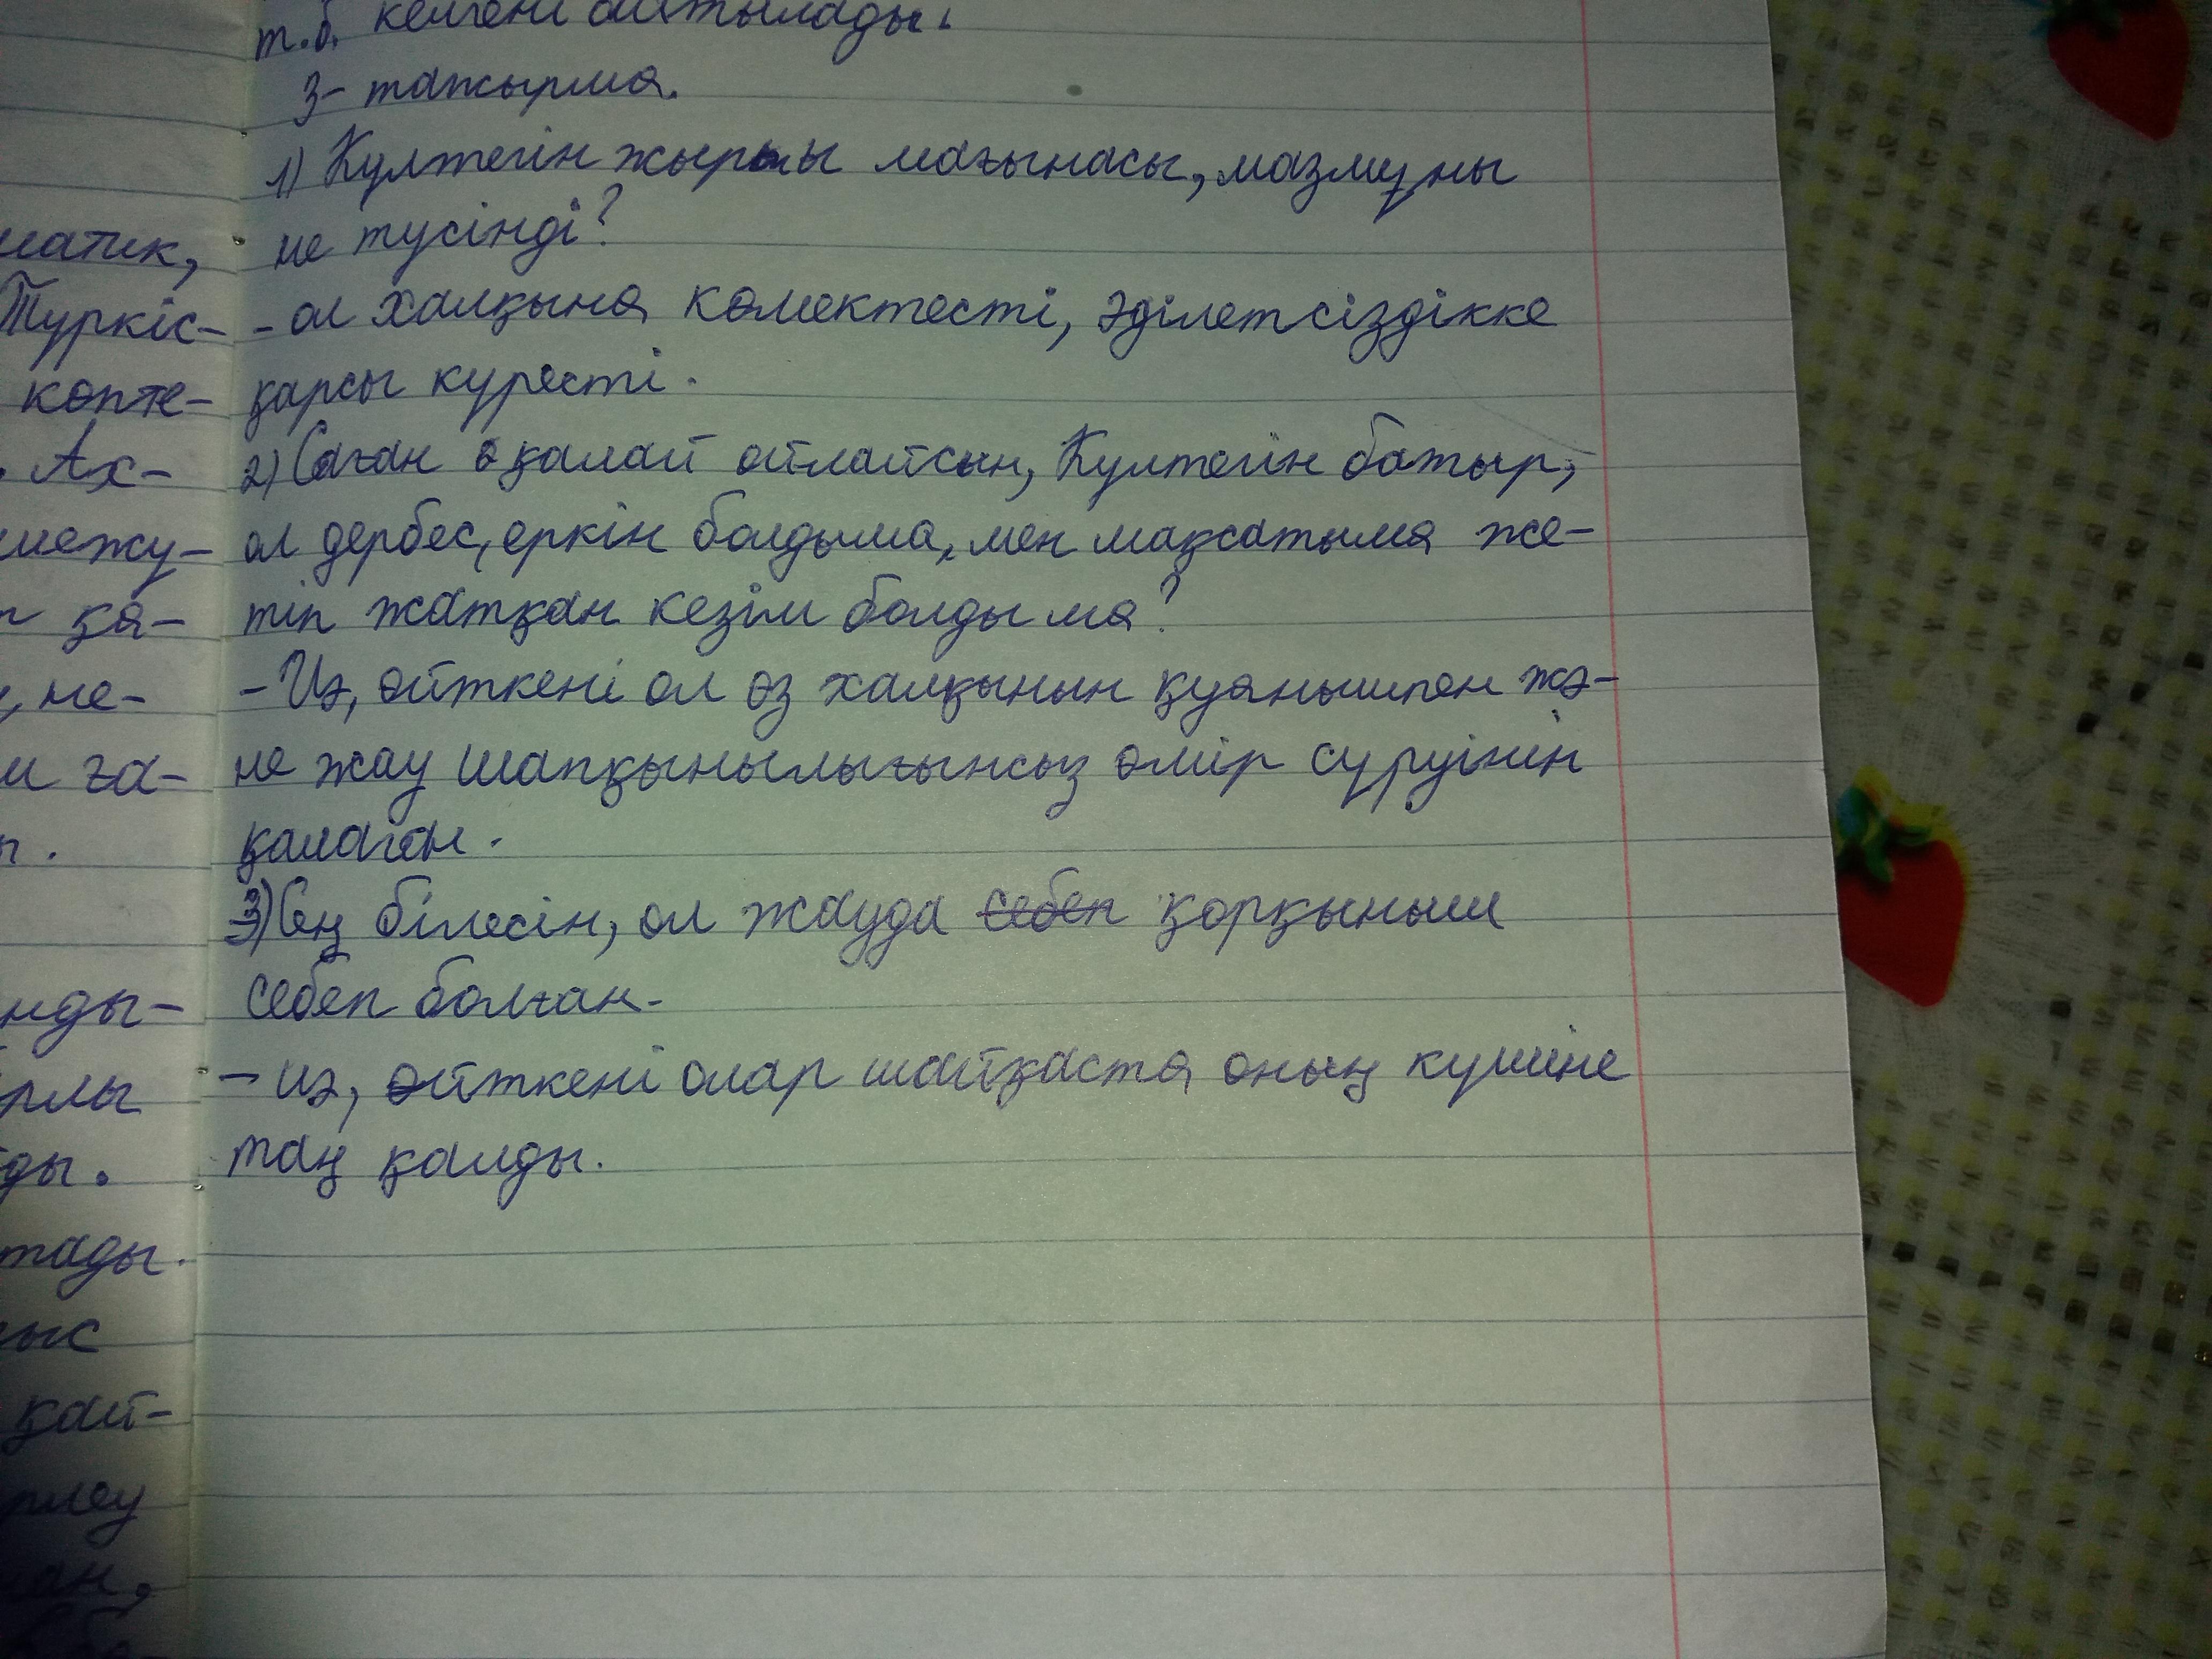 т.б. келгені айтылады.
3- тапсырма.
1) Күлтегін жыры мағынасы, мазмұны
не түсінді?
- ол халқына көмектесті, әділетсіздікке
қарсы күресті.
2) Саған қалай ойлайсын, Күлтегін батыр,
ол дербес, еркін болдыма, мен мақсатыма же-
тіп жатқан кезім болды ма?
- Иә, өйткені ол өз халқынын қуанышпен жә-
не жау шапқыншылығынсыз өмір сүруінін
қалаған.
3) Сең білесін, ол жауда себеп қорқыныш
себеп болған.
- иә, өйткені олар шайқаста оның күшіне
таң қалды.
матик,
Түркіс-
көпте-
. Ах-
межу-
қа-
, не-
ға-
нды-
рлы
ды.
тады.
қай-